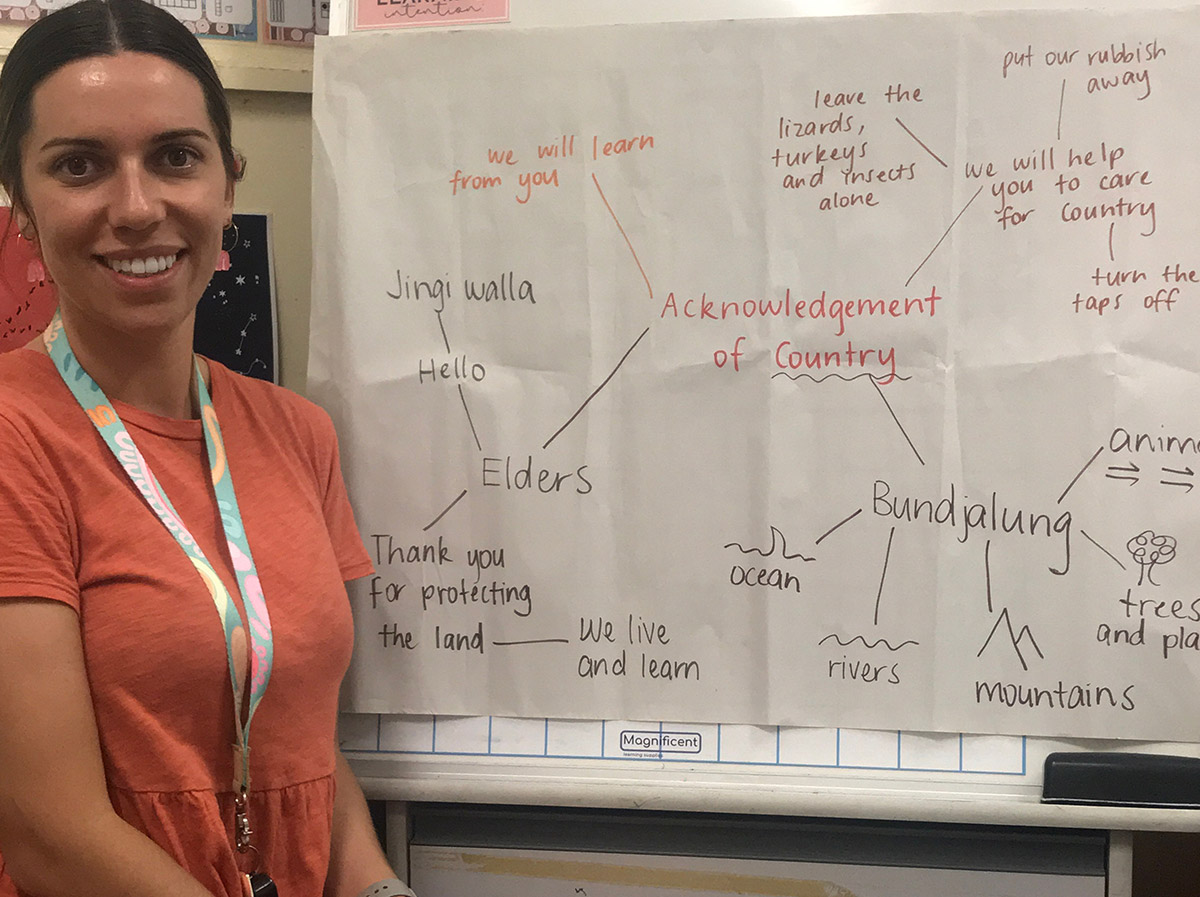 intention
put our rubbish
away
leave the
lizards,
turkeys
and insects
alone
we will help
you to care
for Country
turn the
taps off
we will learn
from you
Acknowledgement
of Country
Jingi walla
Hello
Elders
Thank you
for protecting
the land
We live
and learn
Bundjalung
ocean
rivers
mountains
trees
and
Magnificent